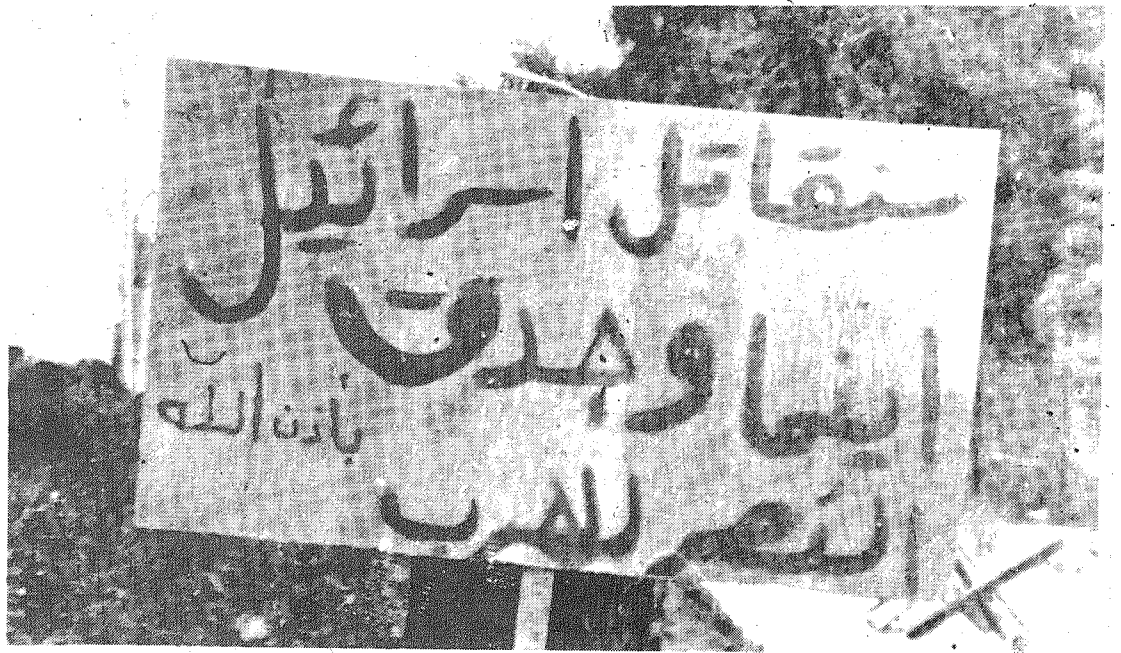 سنقاتل اسرائيل
اينما وجدت
باذن الله
النصر للعرب